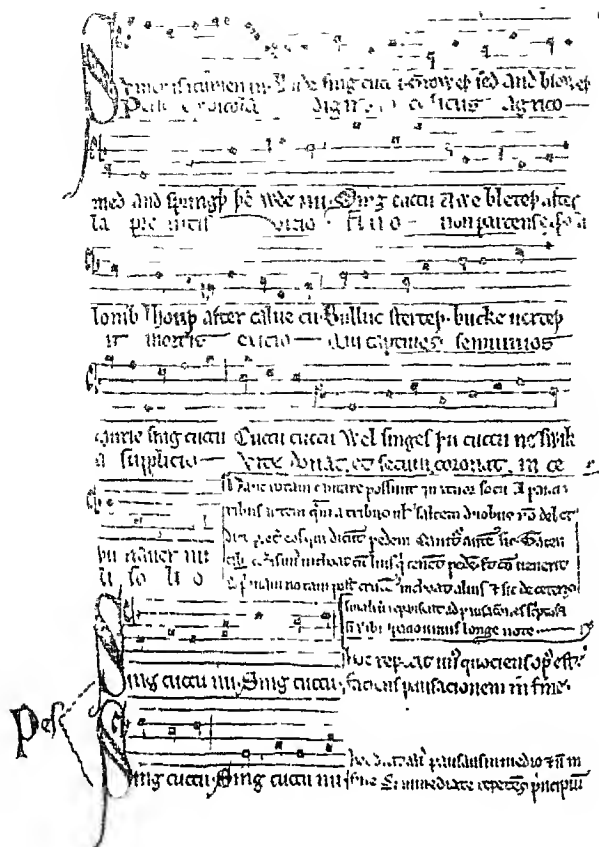 Sumer is icumen in. Lhude sing cuccu. Groweþ sed and bloweþ
Perspice xpicola dignacio celicus agrico
med and springþ þe wde nu. Sing cuccu Awe bleteþ after
la pro uitis uicio filio non parcens expo
lomb lhouþ after calue cu. Bulluc sterteþ. bucke uerteþ
it mortis exicio Qui captiuos semiuiuos
murie sing cuccu Cuccu cuccu Wel singes þu cuccu ne swik
a supplicio Vite donat, et secum coronat. in ce
þu nauer nu
li so li o
Hanc rotam cantare possunt quatuor socii. A paucio
ribus autem quam a tribus uel saltem duobus non debet
dici. preter eos qui dicunt pedem. Canitur autem sic. Tacen
tibus ceteris unus inchoat cum hiis qui tenent pedem. Et cum uenerit
ad primam notam post crucem, inchoat alius. & sic de ceteris
singuli uero repausent ad pausaciones scriptas
& non alibi. spacio unius longe note
hoc repetit unus quociens opus est.
Sing cuccu nu. Sing cuccu. faciens pausacionem in fine.
Pes
hoc dicit alius. pausans in medio & non in
Sing cuccu. Sing cuccu nu fine. Sed immediate repetens principium